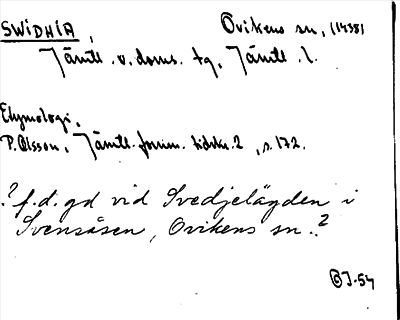 SWIDHIA, Ovikens sn, (1438)
Jämtl. v. doms. tg, Jämtl. l.
Etymologi.
P. Olsson, Jämtl. fornm. tidskr. 2, s. 172.
? f.d. gd vid Svedjelägden i
Svensåsen, Ovikens sn. ?
B J-54